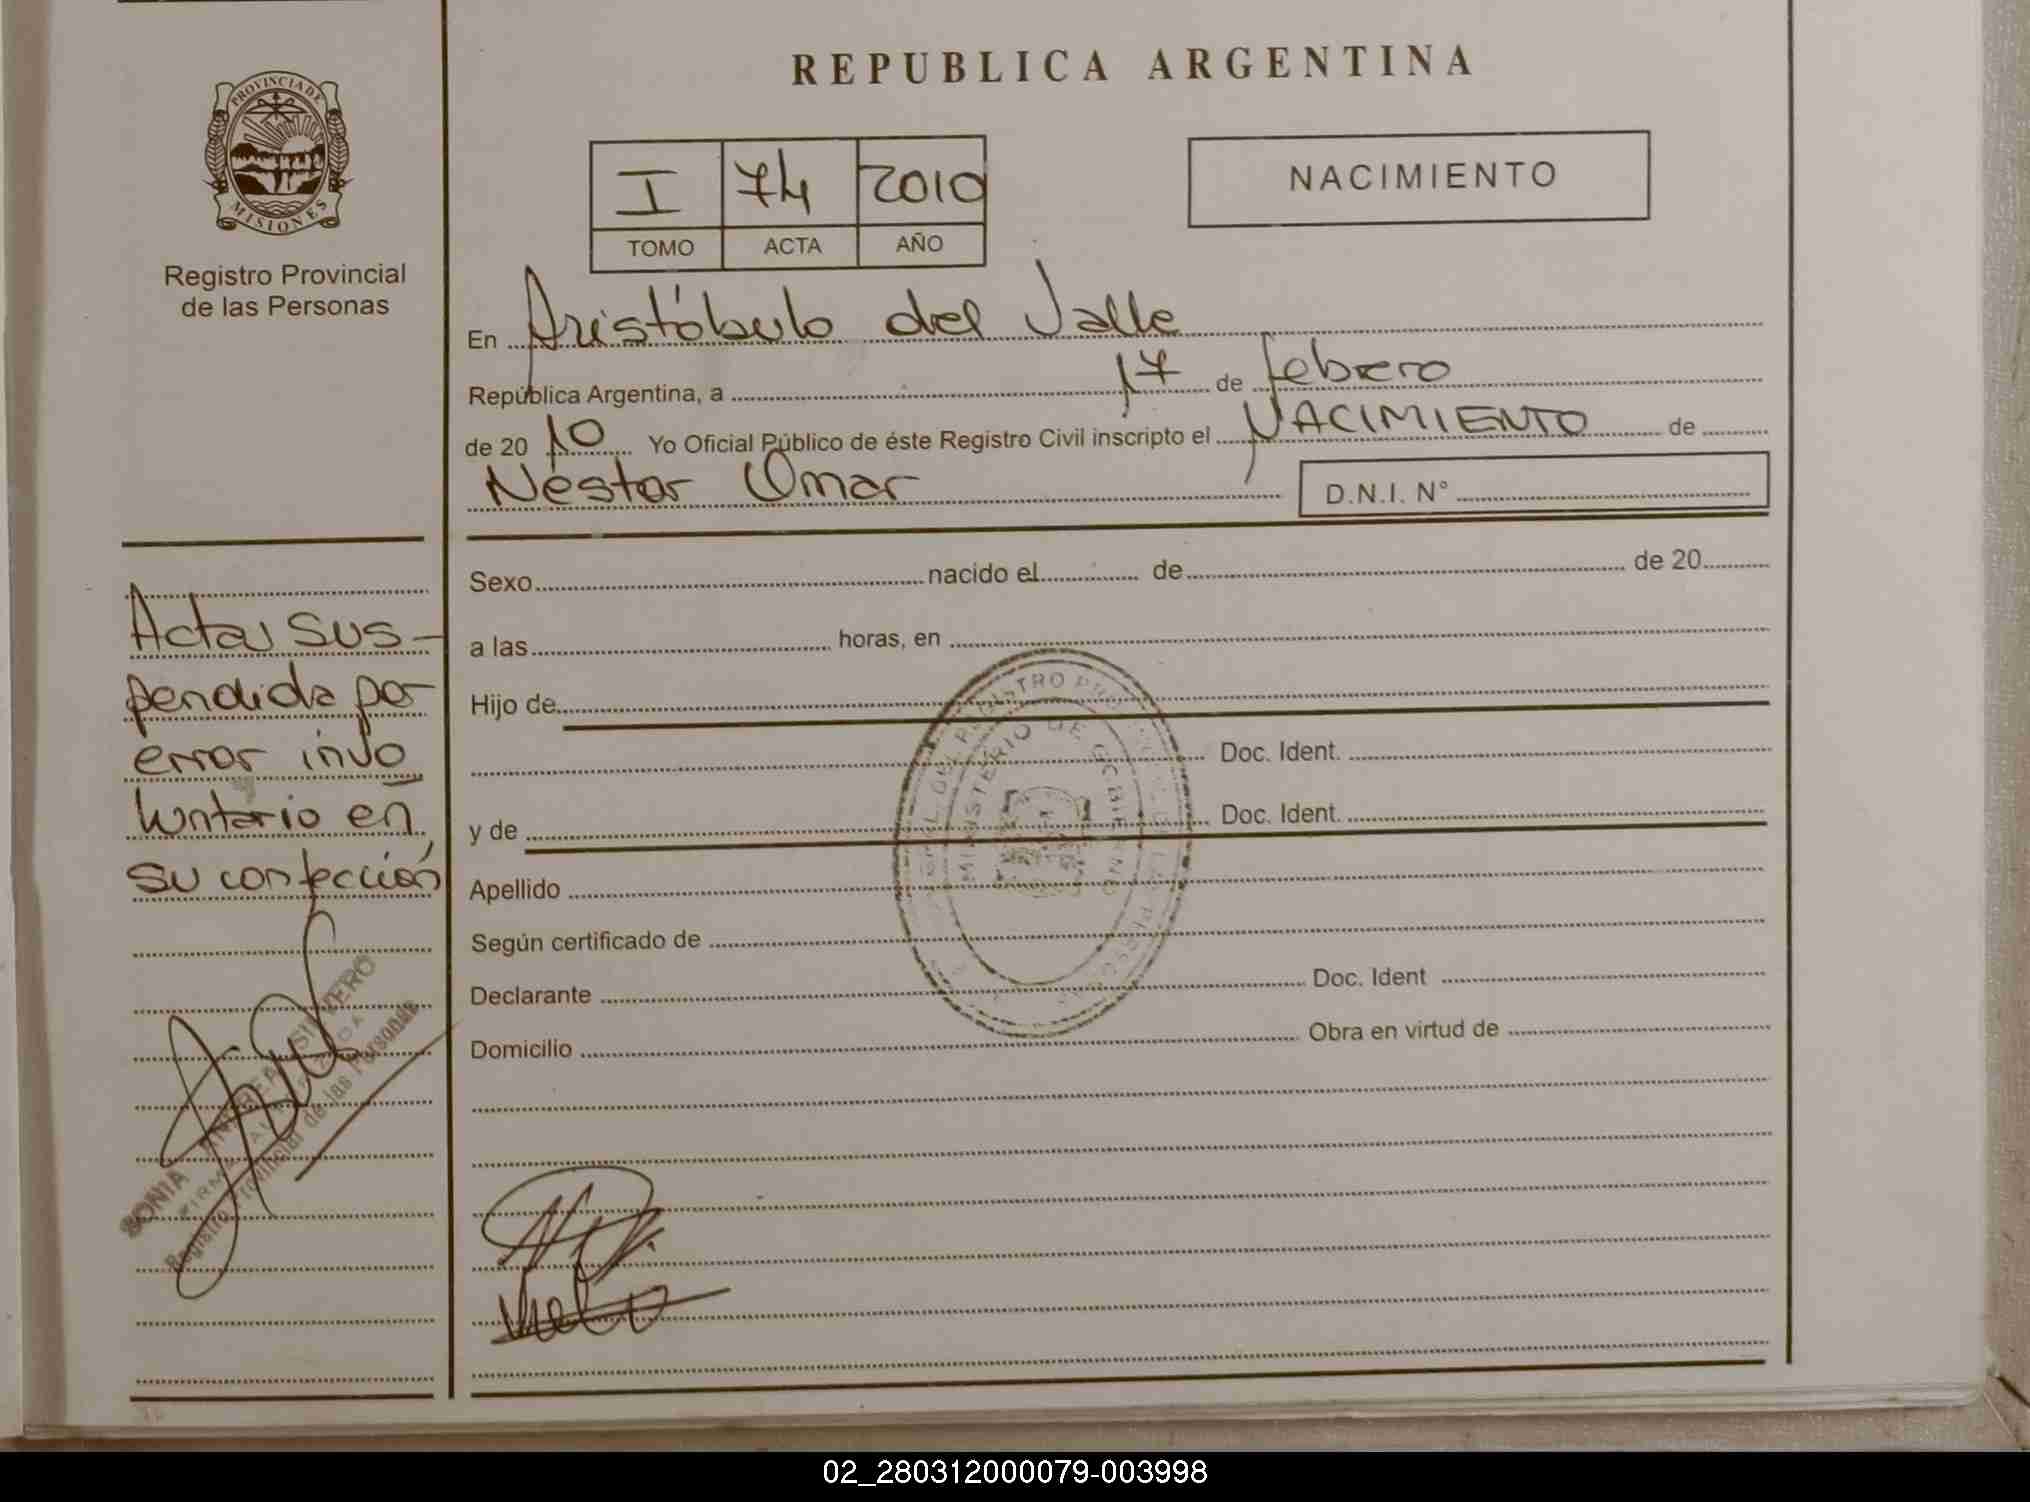 PROVINCIA DE
MISIONES
Registro Provincial
de las Personas
REPUBLICA ARGENTINA
I 74 2010
TOMO ACTA AÑO
NACIMIENTO
En Aristóbulo del Valle
República Argentina, a 17 de febrero
de 20 10 Yo Oficial Público de éste Registro Civil inscripto el NACIMIENTO de
Néstor Omar D.N.I. N°
Sexo nacido el de de 20
a las horas, en
Hijo de
Doc. Ident.
y de Doc. Ident.
Apellido
Según certificado de
Declarante Doc. Ident
Domicilio Obra en virtud de
Acta sus-
pendida por
error invo
luntario en
su confección
SONIA ANDREA SILVERO
FIRMA
Registro Provincial de las Personas
REGISTRO
MINISTERIO DE GOBIERNO
02_280312000079-003998